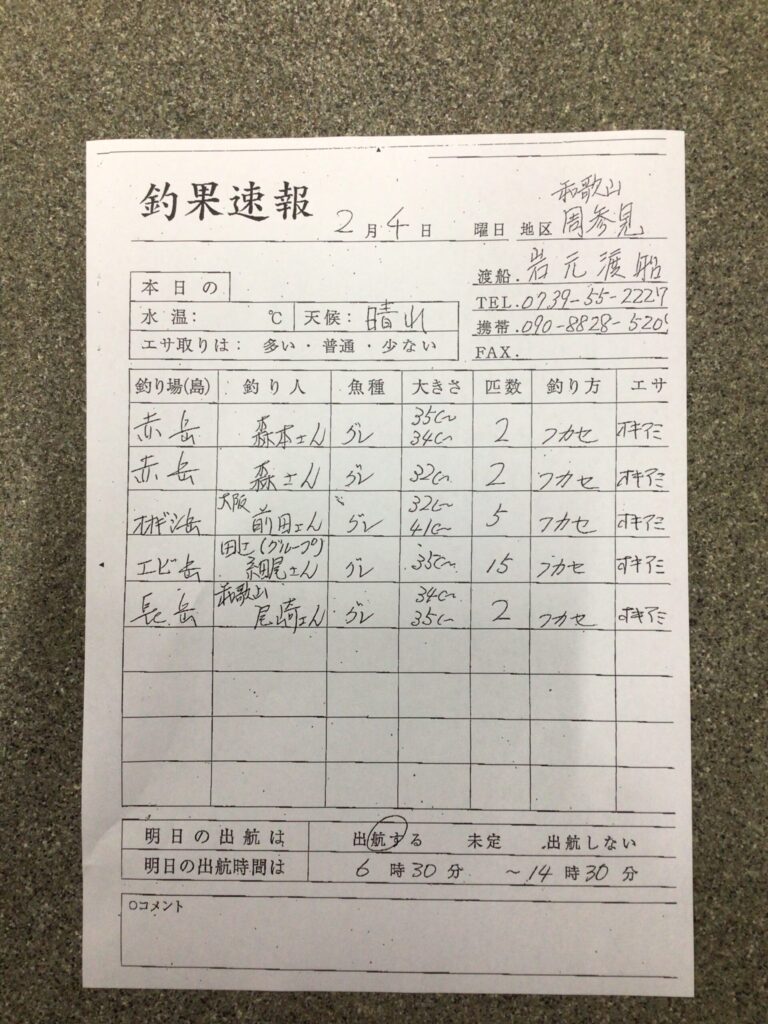 釣果速報
2月4日 曜日 地区 和歌山 周参見
渡船. 岩元渡船
TEL. 0739-55-2227
携帯. 090-8828-520
FAX.
本日の
水温: ℃ 天候: 晴れ
エサ取りは: 多い・普通・少ない
釣り場(島) 釣り人 魚種 大きさ 匹数 釣り方 エサ
赤岳 森本さん グレ 35㎝ 34㎝ 2 フカセ オキアミ
赤岳 森さん グレ 32㎝ 2 フカセ オキアミ
大阪 前田さん グレ 32㎝ 41㎝ 5 フカセ オキアミ
エビ岳 (グループ) 細尾さん グレ 35㎝ 15 フカセ オキアミ
長岳 和歌山 尾崎さん グレ 34㎝ 35㎝ 2 フカセ オキアミ
明日の出航は 出航する 未定 .出航しない
明日の出航時間は 6時30分 ～14時30分
○コメント